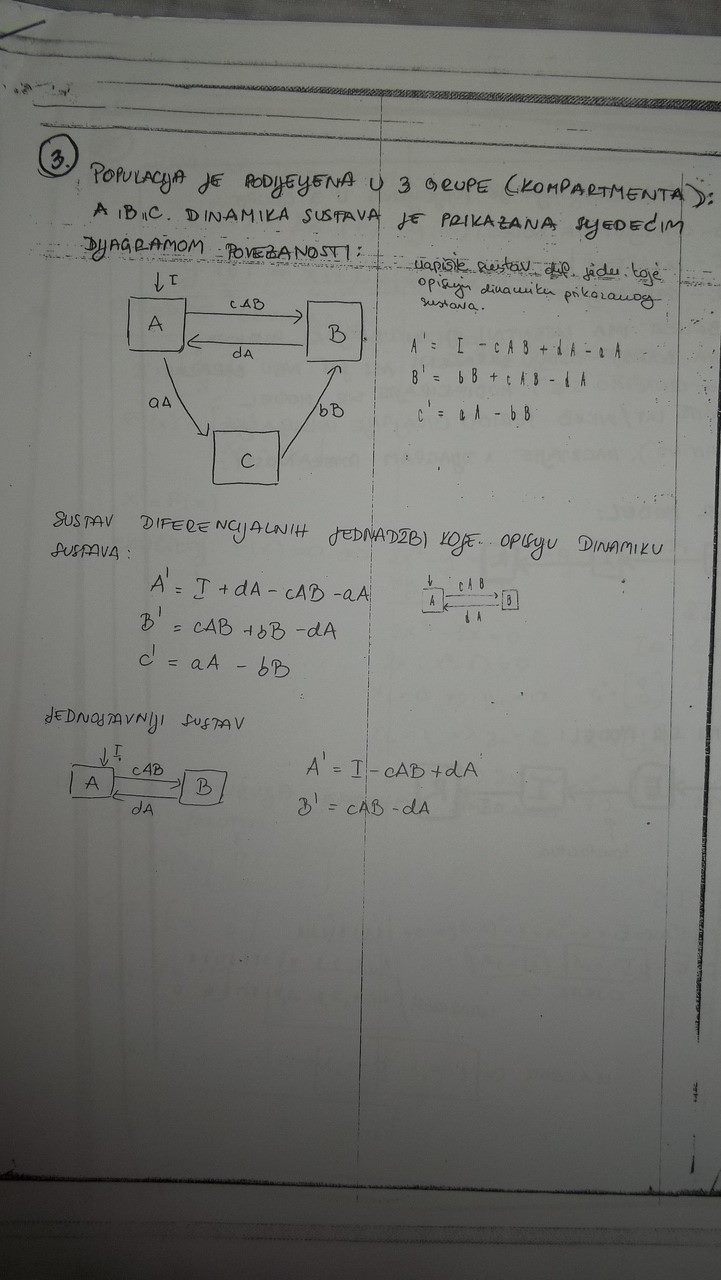 3.
POPULACIJA JE PODIJELJENA U 3 GRUPE (KOMPARTMENTA):
A, B, C. DINAMIKA SUSTAVA JE PRIKAZANA SLJEDEĆIM
DIJAGRAMOM POVEZANOSTI:
napišite sustav dif. jedn. koje
opisuju dinamiku prikazanog
sustava.
I
A
cAB
dA
B
aA
bB
C
A' = I - cAB + dA - aA
B' = bB + cAB - dA
C' = aA - bB
SUSTAV DIFERENCIJALNIH JEDNADŽBI KOJE OPISUJU DINAMIKU
SUSTAVA:
A' = I + dA - cAB - aA
B' = cAB + bB - dA
C' = aA - bB
A
cAB
dA
B
JEDNOSTAVNIJI SUSTAV
I
A
cAB
dA
B
A' = I - cAB + dA
B' = cAB - dA